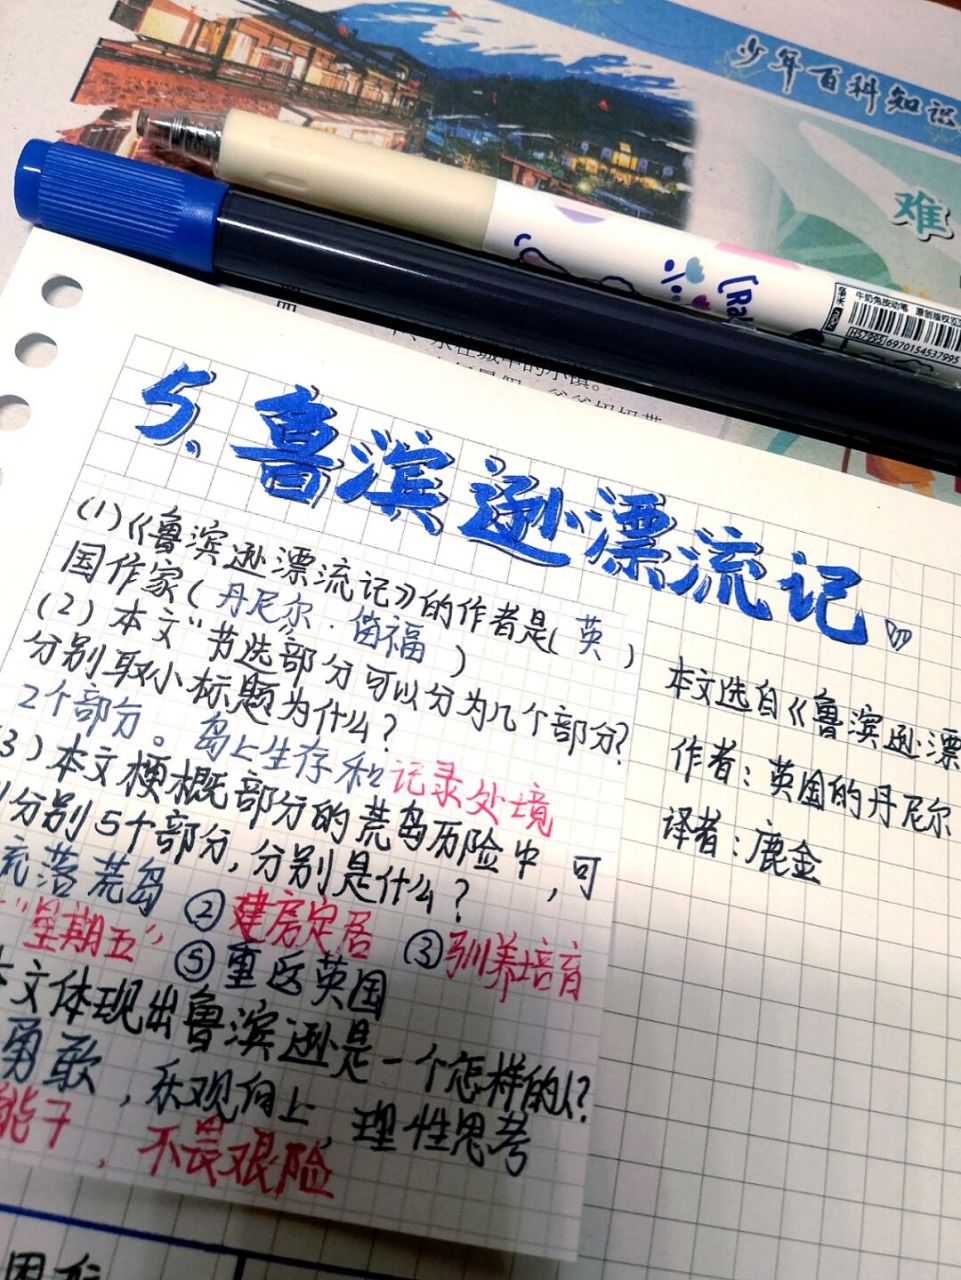 少年百科知识
难
牛奶兔按动笔
6970154537995
5.鲁滨逊漂流记
(1)《鲁滨逊漂流记》的作者是(英)
国作家(丹尼尔·笛福)
(2)本文"节选部分可以分为几个部分?
分别取小标题为什么?
2个部分。岛上生存和记录处境
3)本文梗概部分的荒岛历险中,可
分别5个部分,分别是什么?
流落荒岛 ②建房定居 ③驯养培育
"星期五" ⑤重返英国
本文体现出鲁滨逊是一个怎样的人?
勇敢,乐观向上,理性思考
能干,不畏艰险
本文选自《鲁滨逊漂
作者:英国的丹尼尔
译者:鹿金